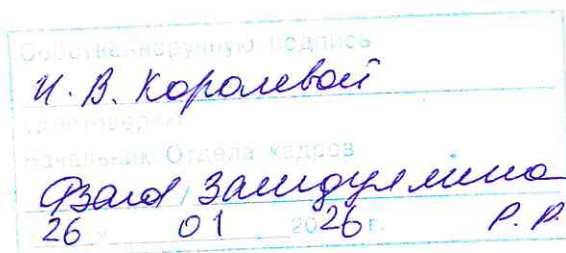 Собственноручную подпись
И. В. Королевой
удостоверяю
Начальник Отдела кадров
Замдулмина
26 01 2026 г. Р. Р.